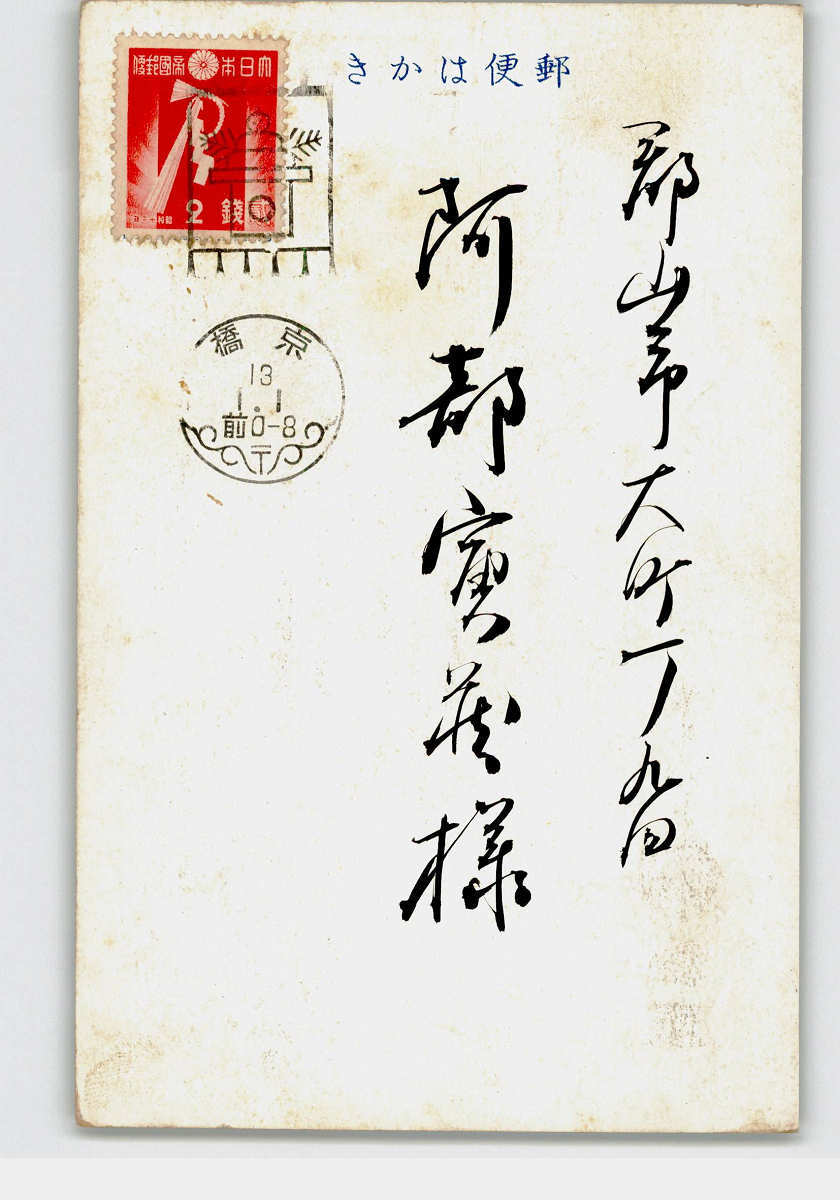 郵便はかき
大日本帝國郵便
貳錢
2
京橋
13
1.1
前0-8
〒
郡山市大町一丁九四
阿部寳蔵様